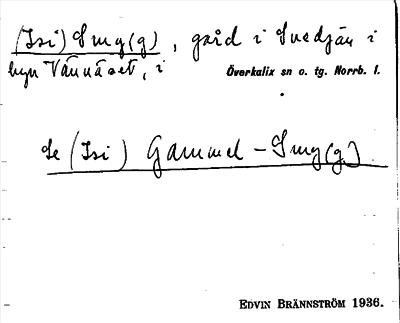 (Isi) Smy(g), gård i Svedjan i
byn Vännäset, i Överkalix sn o. tg. Norrb. l.
Se (Isi) Gammel-Smy(g)
EDVIN BRÄNNSTRÖM 1936.